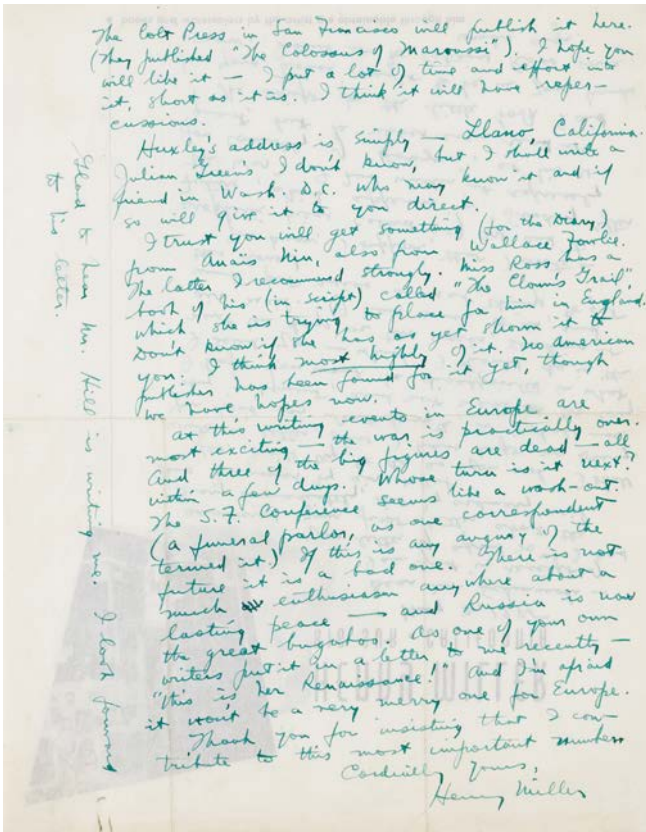 The Colt Press in San Francisco will publish it here.
(They published "The Colossus of Maroussi"). I hope you
will like it — I put a lot of time and effort into
it, short as it is. I think it will have reper-
cussions.
Huxley's address is simply — Llano, California.
Julian Green's I don't know, but I shall write a
friend in Wash. D.C. who may know it and if
so will give it to you direct.
I trust you will get something (for the Diary)
from Anaïs Nin, also from Wallace Fowlie.
The latter I recommend strongly. Miss Ross has a
book of his (in script) called "The Clown's Grail",
which she is trying to place for him in England.
Don't know if she has as yet shown it to
you. I think most highly of it. No American
publisher has been found for it yet, though
we have hopes now.
At this writing events in Europe are
most exciting — the war is practically over.
And three of the big figures are dead — all
within a few days. Whose turn is it next?
The S.F. Conference seems like a wash-out.
(a funeral parlor, as one correspondent
termed it.) If this is any augury of the
future it is a bad one. There is not
much enthusiasm anywhere about a
lasting peace — and Russia is now
the great bugaboo. As one of your own
writers put it in a letter to me recently —
"this is her Renaissance!" And I'm afraid
it won't be a very merry one for Europe.
Thank you for insisting that I con-
tribute to this most important number
Cordially yours,
Henry Miller
Glad to hear Mr. Hill is writing me. I look forward
to his letter.